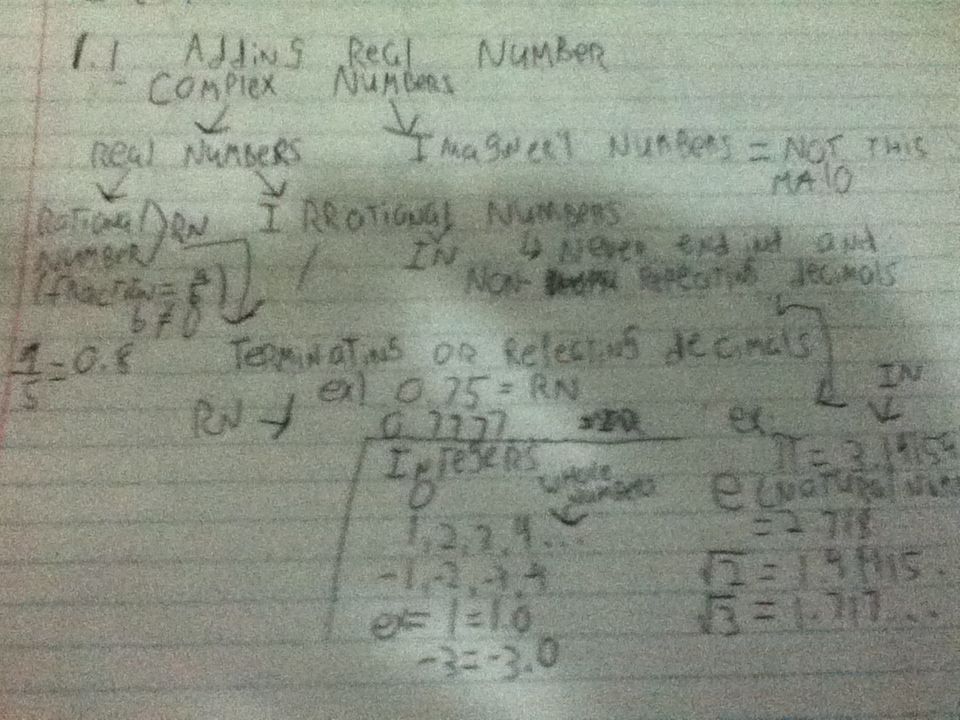 1.1 Adding Real Number
- Complex Numbers
Real Numbers
Numbers = Not This
MA10
Rational RN
Number
IRRational Numbers
IN
Never end and
Non- decimals
(fraction = a/b)
b ≠ 0
4/5 = 0.8
Terminating or Repeating decimals
ex) 0.75 = RN
RN → 0.7777
Integers
0
whole
numbers
1, 2, 3, 4...
-1, -2, -3, -4
ex= 1=1.0
-3=-3.0
IN
ex.
π = 3.14159
e (Natural Num
= 2.718
√2 =
√3 =